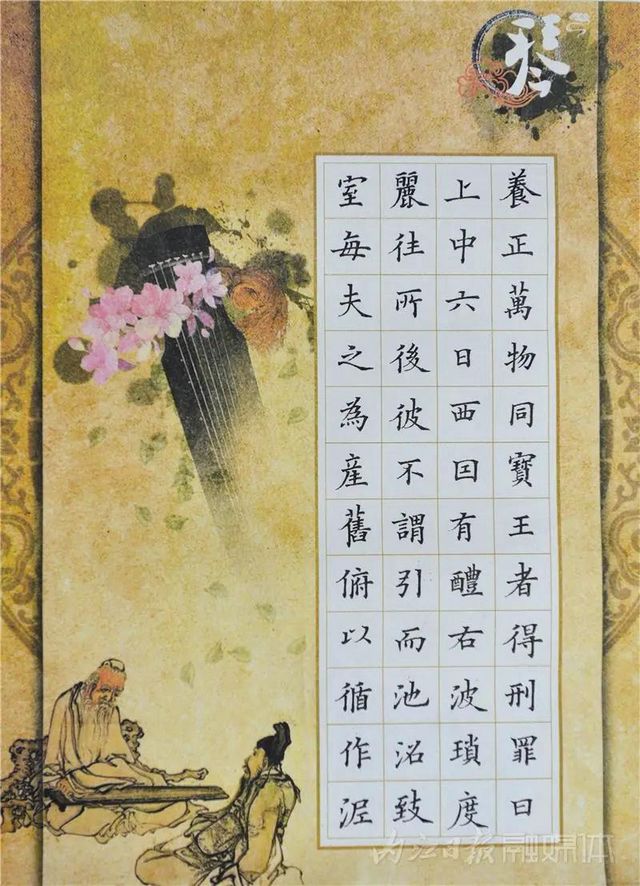 琴
養正萬物同寶王者得刑罪日
上中六日西囯有醴右波瑣度
麗往所後彼不謂引而池沼致
室每夫之為産舊俯以循作
内江日报融媒体